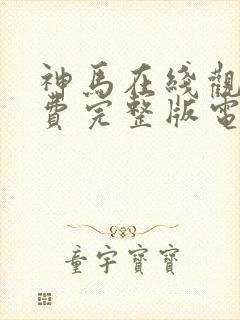 神馬在綫觀
費完整版電
童宇寶寶